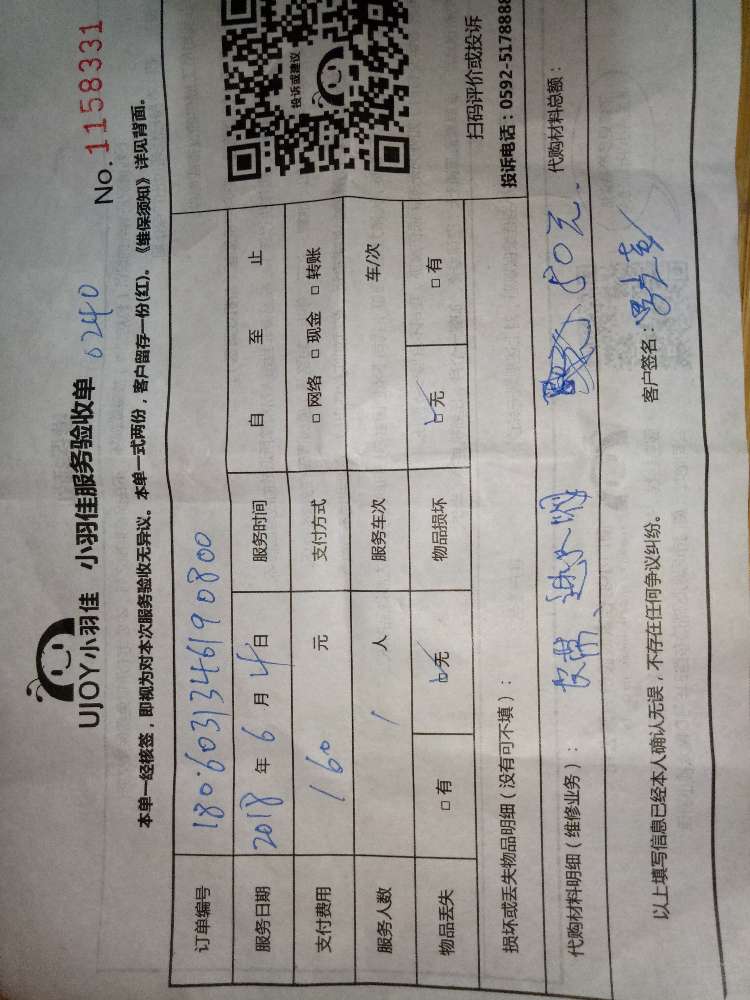 UJOY小羽佳 小羽佳服务验收单 0240
No. 1158331
本单一经核签，即视为对本次服务验收无异议。本单一式两份，客户留存一份(红)。《维保须知》详见背面。
订单编号 180603134619 0800
服务日期 2018 年 6 月 4 日 服务时间 自 至 止
支付费用 160 元 支付方式 □ 网络 □ 现金 □ 转账
服务人数 1 人 服务车次 车/次
物品丢失 □ 有 □ 无 物品损坏 □ 无 □ 有
投诉或建议
扫码评价或投诉
投诉电话：0592-5178888
损坏或丢失物品明细（没有可不填）：
代购材料明细（维修业务）： 皮带、进水阀 50元. 代购材料总额：
以上填写信息已经本人确认无误，不存在任何争议纠纷。 客户签名：